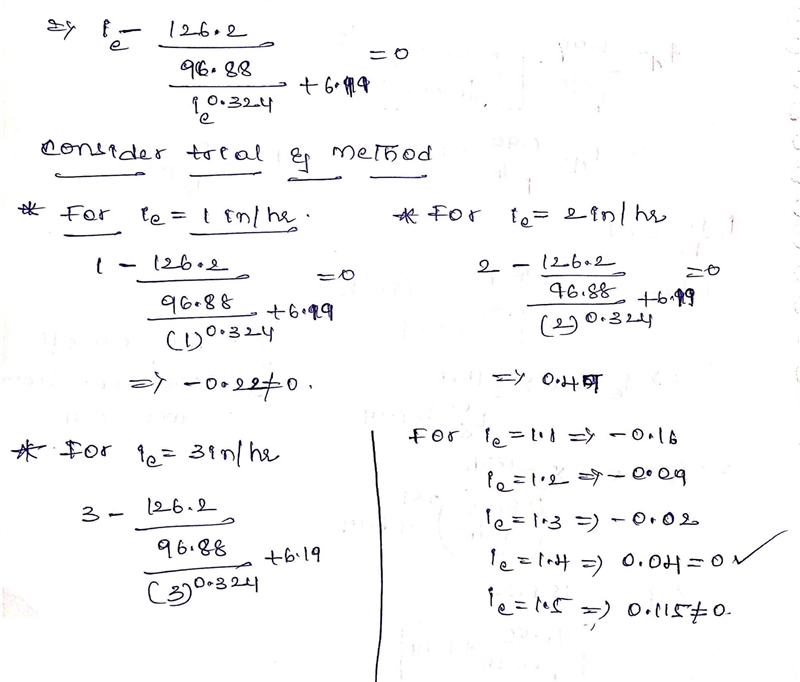 => i_e - 126.2 / (96.88 / i_e^0.324 + 6.19) = 0
Consider trial & method
* For i_e = 1 in/hr.
1 - 126.2 / (96.88 / (1)^0.324 + 6.19) = 0
=> -0.22 ≠ 0.
* For i_e = 2 in/hr
2 - 126.2 / (96.88 / (2)^0.324 + 6.19) = 0
=> 0.47
* For i_e = 3 in/hr
3 - 126.2 / (96.88 / (3)^0.324 + 6.19)
For i_e = 1.1 => -0.16
i_e = 1.2 => -0.09
i_e = 1.3 => -0.02
i_e = 1.4 => 0.04 = 0 ✓
i_e = 1.5 => 0.115 ≠ 0.